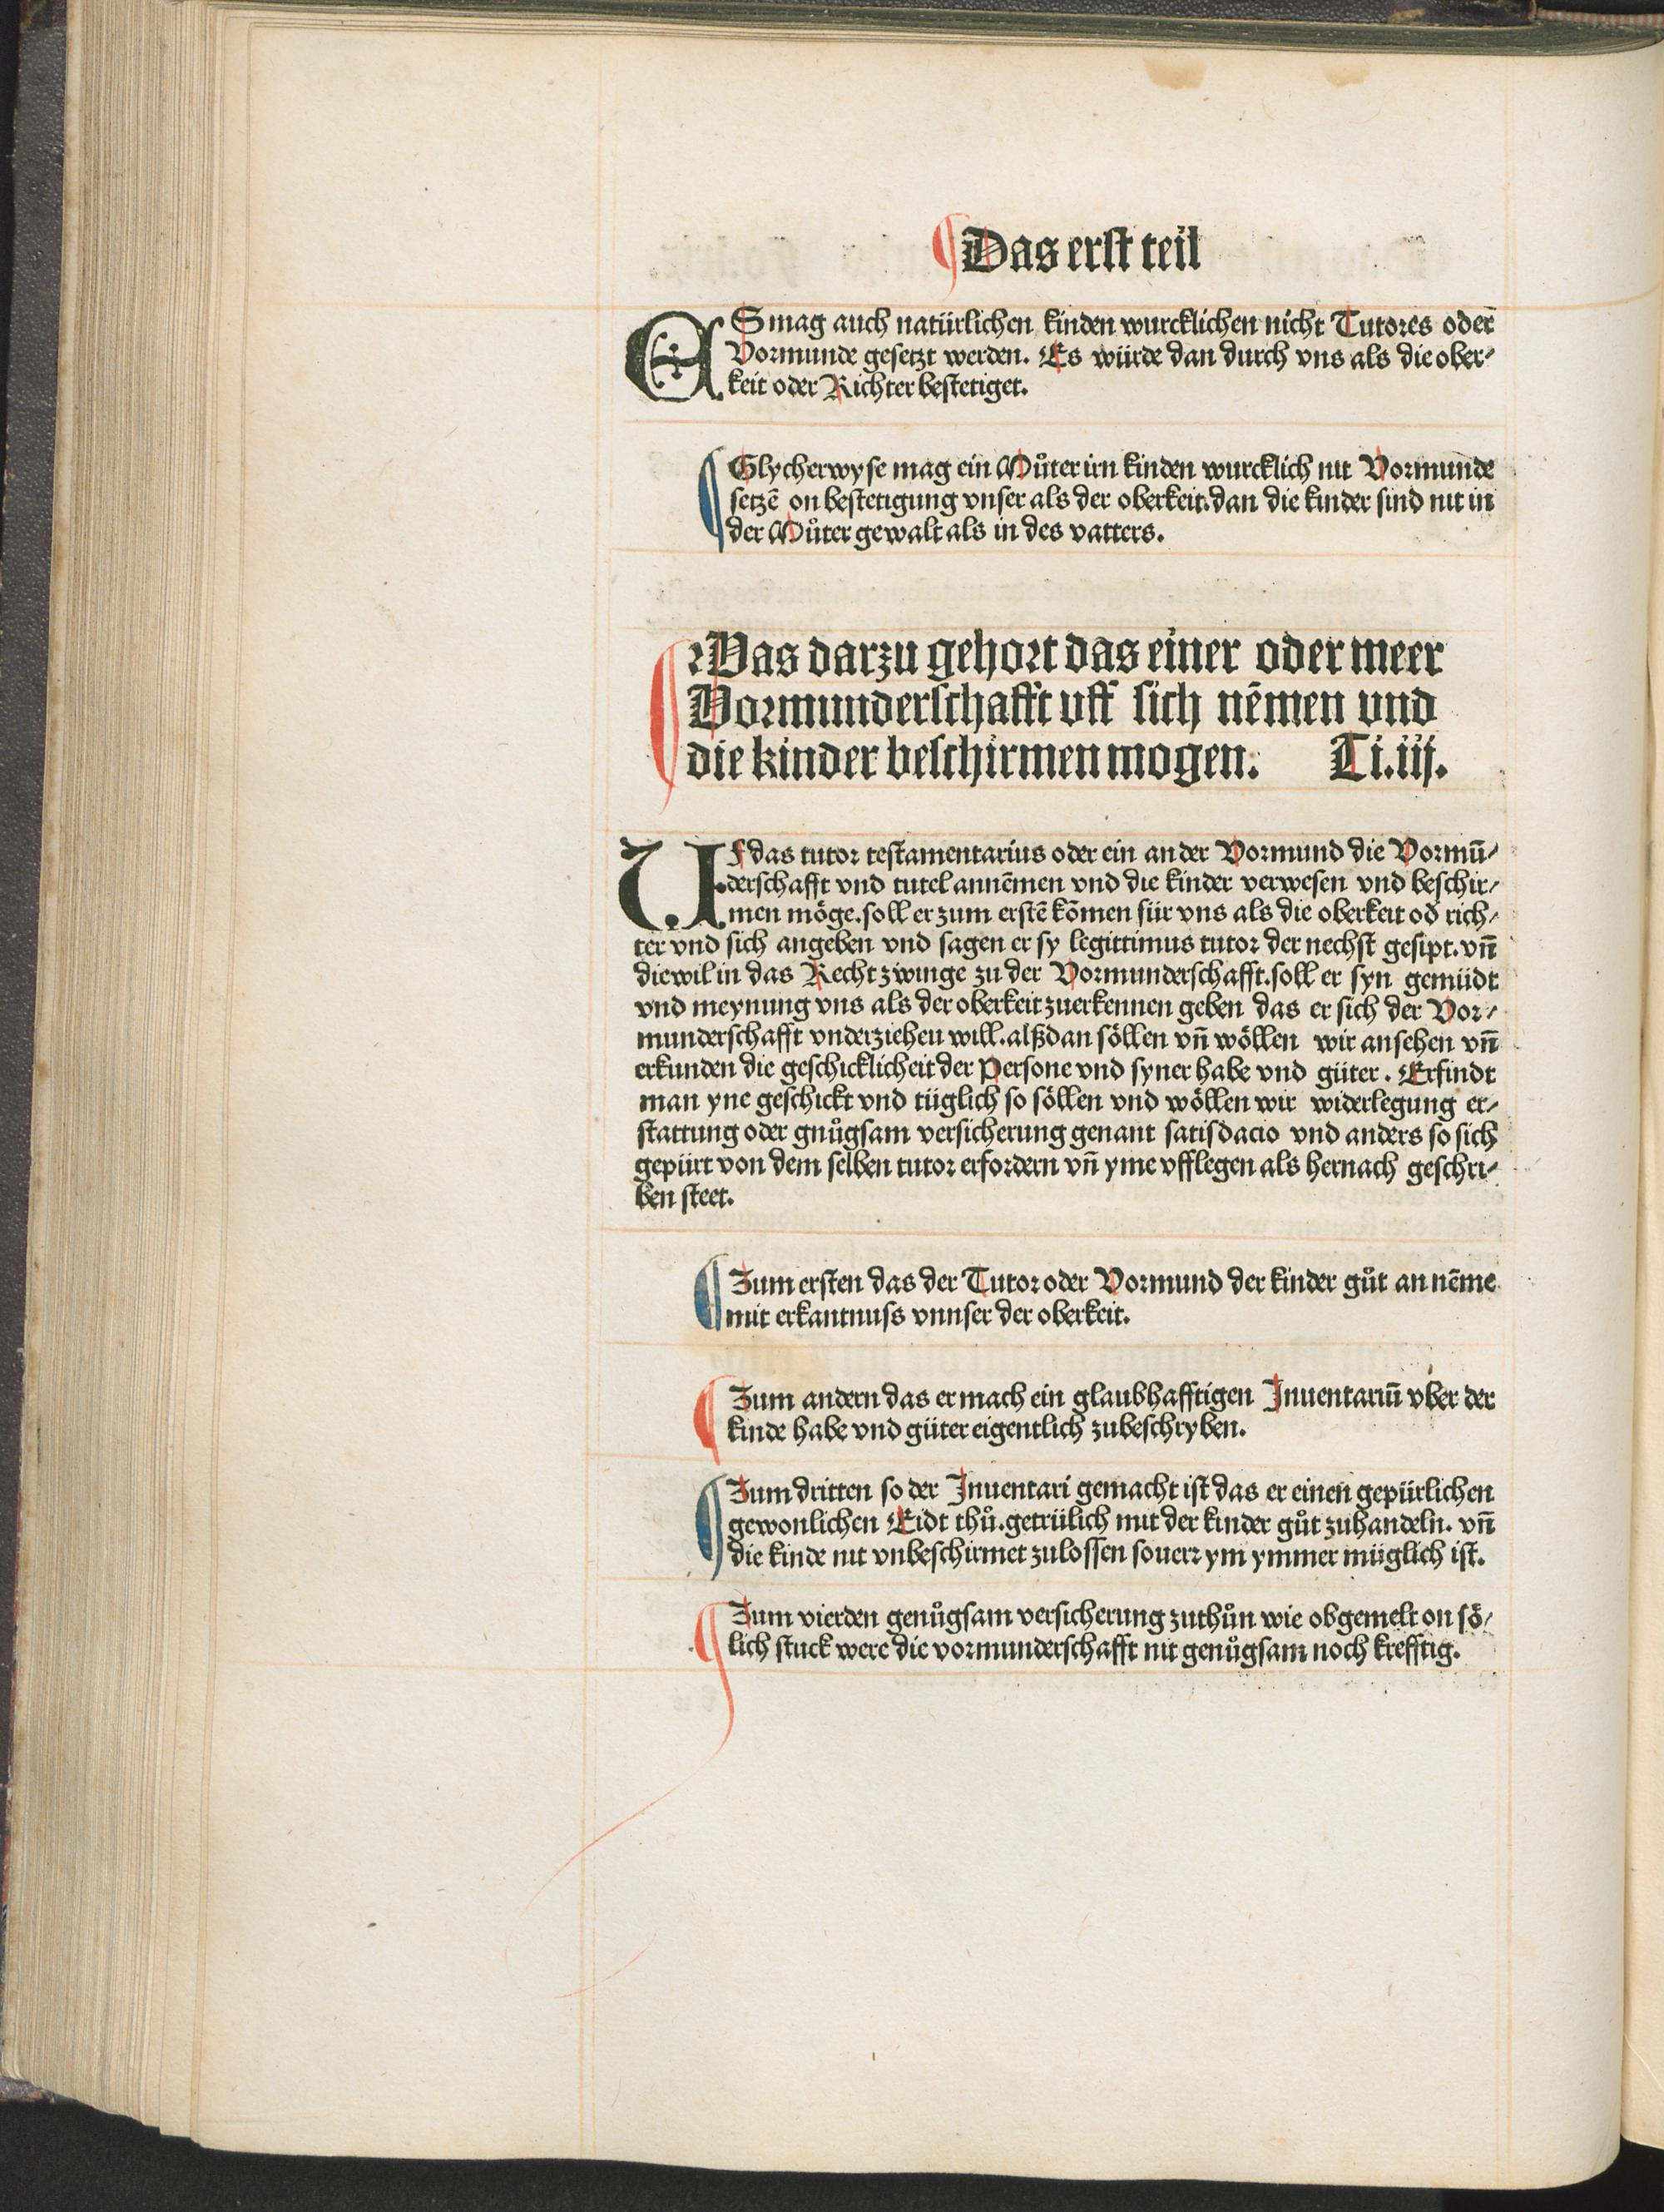 Das erst teil
ES mag auch natürlichen kinden wurcklichen nicht Tutores oder
Vormunde gesetzt werden. Es würde dan durch vns als die ober⸗
keit oder Richter bestetiget.
Glycherwyse mag ein Můter irn kinden wurcklich nit Vormunde
setzē on bestetigung vnser als der oberkeit. dan die kinder sind nit in
der Můter gewalt als in des vatters.
Was darzu gehort das einer oder meer
Vormunderschafft vff sich nēmen vnd
die kinder beschirmen mogen. Ti.iij.
Uf das tutor testamentarius oder ein ander Vormund die Vormū⸗
derschafft vnd tutel annēmen vnd die kinder verwesen vnd beschir⸗
men möge. soll er zum erstē kōmen für vns als die oberkeit od̄ rich⸗
ter vnd sich angeben vnd sagen er sy legittimus tutor der nechst gesipt. vn̄
diewil in das Recht zwinge zu der Vormunderschafft. soll er syn gemüdt
vnd meynung vns als der oberkeit zuerkennen geben das er sich der Vor⸗
munderschafft vnderziehen will. alßdan söllen vn̄ wöllen wir ansehen vn̄
erkunden die geschicklicheit der Persone vnd syner habe vnd güter. Erfindt
man yne geschickt vnd tüglich so söllen vnd wöllen wir widerlegung er⸗
stattung oder gnůgsam versicherung genant satisdacio vnd anders so sich
gepürt von dem selben tutor erfordern vn̄ yme vfflegen als hernach geschri⸗
ben steet.
Zum ersten das der Tutor oder Vormund der kinder gůt an nēme
mit erkantnuss vnnser der oberkeit.
Zum andern das er mach ein glaubhafftigen Inuentariū vber der
kinde habe vnd güter eigentlich zubeschryben.
Zum dritten so der Inuentari gemacht ist das er einen gepürlichen
gewonlichen Eidt thů. getrülich mit der kinder gůt zuhandeln. vn̄
die kinde nit vnbeschirmet zulossen souerr ym ymmer müglich ist.
Zum vierden genůgsam versicherung zuthůn wie obgemelt on sö⸗
lich stuck were die vormunderschafft nit genůgsam noch krefftig.